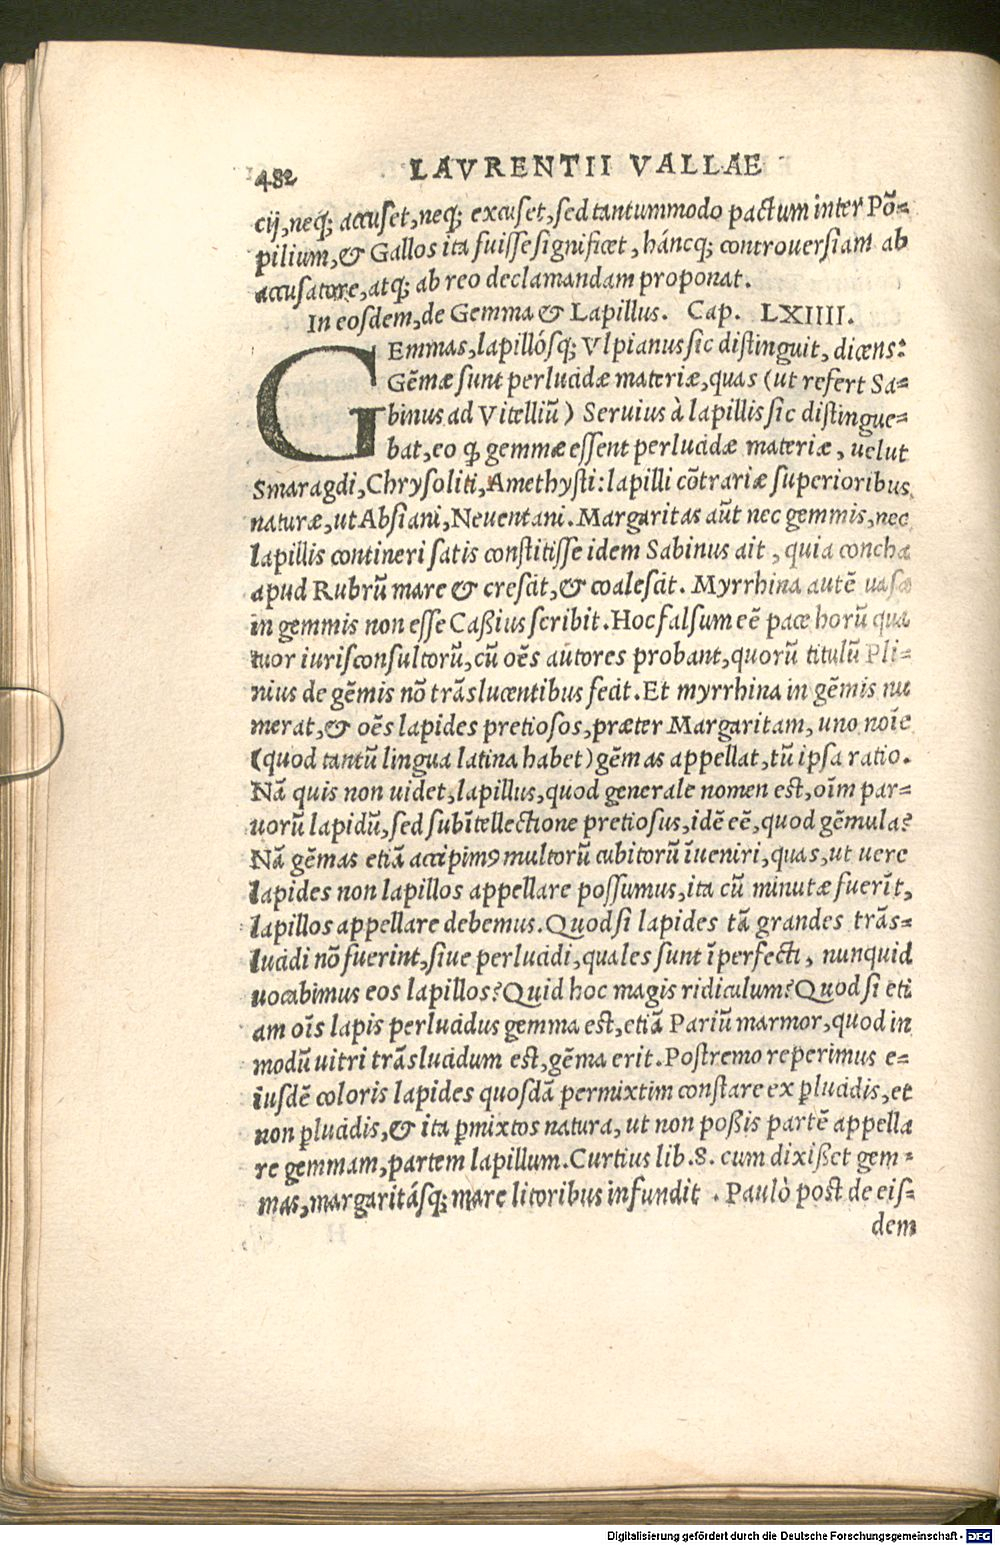 482 LAVRENTII VALLAE
cij, neq; accuset, neq; excuset, sed tantummodo pactum inter Põ-
pilium, & Gallos ita fuisse significet, háncq; controuersiam ab
accusatore, atq; ab reo declamandam proponat.
In eosdem, de Gemma & Lapillus. Cap. LXIIII.
GEmmas, lapillósq; Vlpianus sic distinguit, dicens:
Gẽmæ sunt perlucidæ materiæ, quas (ut refert Sa-
binus ad Vitelliũ) Seruius à lapillis sic distingue-
bat, eo ꝙ gemmæ essent perlucidæ materiæ, uelut
Smaragdi, Chrysoliti, Amethysti: lapilli cõtrariæ superioribus
naturæ, ut Absiani, Neuentani. Margaritas aũt nec gemmis, nec
lapillis contineri satis constitisse idem Sabinus ait, quia concha
apud Rubrũ mare & crescit, & coalescit. Myrrhina autẽ uasa
in gemmis non esse Caßius scribit. Hoc falsum eẽ pace horũ qua
tuor iurisconsultorũ, cũ oẽs autores probant, quorũ titulũ Pli-
nius de gẽmis nõ trãslucentibus fecit. Et myrrhina in gẽmis nu
merat, & oẽs lapides pretiosos, præter Margaritam, uno noĩe
(quod tantũ lingua latina habet) gẽmas appellat, tũ ipsa ratio.
Nã quis non uidet, lapillus, quod generale nomen est, oĩm par-
uorũ lapidũ, sed subĩtellectione pretiosus, idẽ eẽ, quod gẽmula?
Nã gẽmas etiã accipimꝰ multorũ cubitorũ ĩueniri, quas, ut uere
lapides non lapillos appellare possumus, ita cũ minutæ fuerĩt,
lapillos appellare debemus. Quod si lapides tã grandes trãs-
lucidi nõ fuerint, siue perlucidi, quales sunt ĩperfecti, nunquid
uocabimus eos lapillos? Quid hoc magis ridiculum? Quod si eti
am oĩs lapis perlucidus gemma est, etiã Pariũ marmor, quod in
modũ uitri trãslucidum est, gẽma erit. Postremo reperimus e-
iusdẽ coloris lapides quosdã permixtim constare ex ꝑlucidis, et
non ꝑlucidis, & ita ꝑmixtos natura, ut non poßis partẽ appella
re gemmam, partem lapillum. Curtius lib. 8. cum dixißet gem-
mas, margaritásq; mare litoribus infundit. Paulò post de eis-
dem
Digitalisierung gefördert durch die Deutsche Forschungsgemeinschaft - DFG